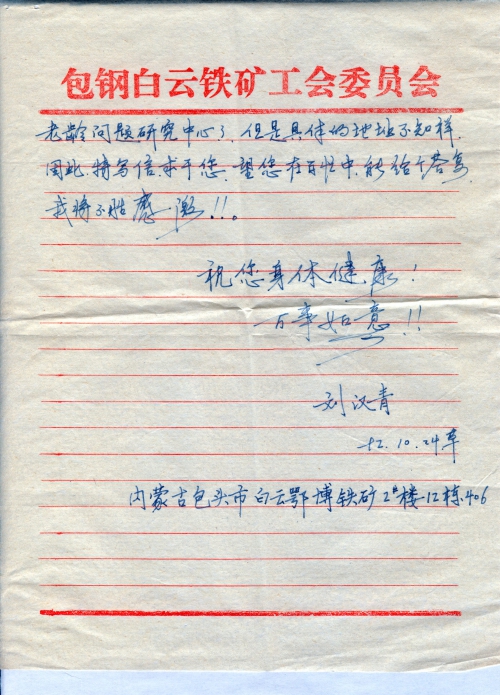 包钢白云铁矿工会委员会
老龄问题研究中心了，但是具体的地址不知祥，
因此，特写信求于您，望您在百忙中，能给个答复
我将不胜感激！！。
祝您身体健康！
万事如意！！
刘汉青
92.10.24草
内蒙古包头市白云鄂博铁矿2#楼-12栋406